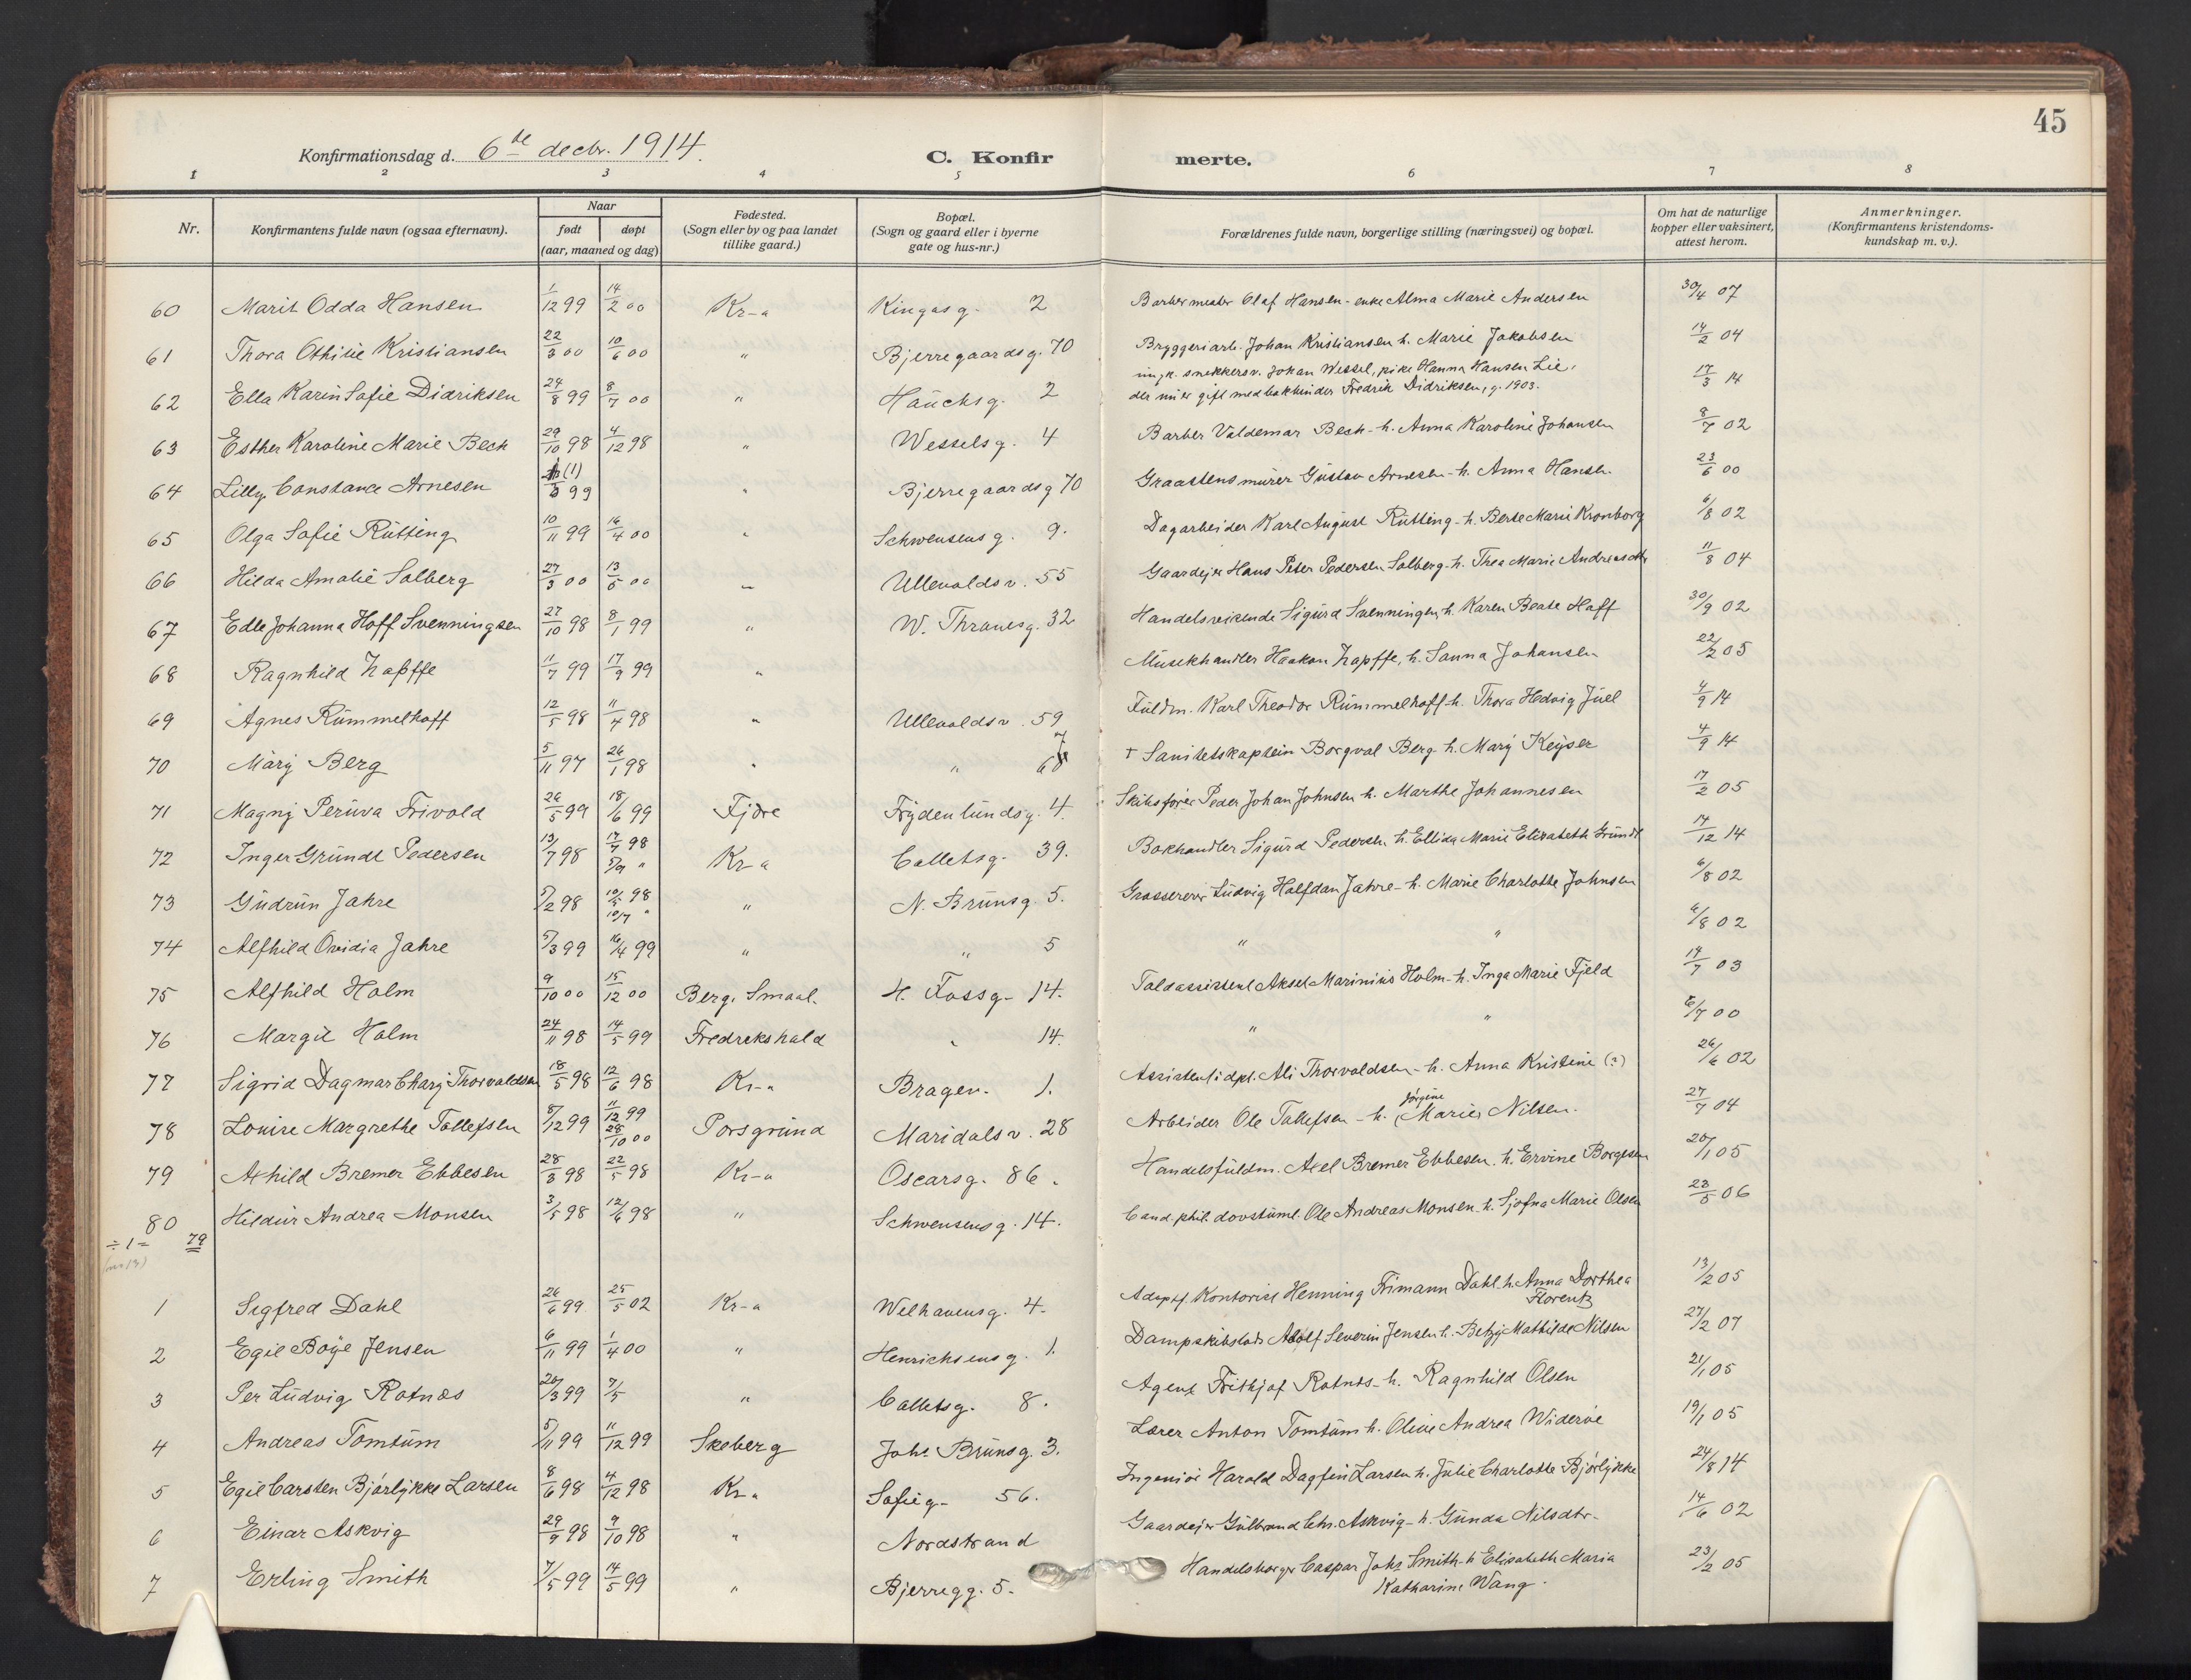 45
Konfirmationsdag d. 6te decbr. 1914.
C. Konfirmerte.
1 2 3 4 5 6 7 8
Nr.
Konfirmantens fulde navn (ogsaa efternavn).
Naar
født døpt
(aar, maaned og dag)
Fødested.
(Sogn eller by og paa landet
tillike gaard.)
Bopæl.
(Sogn og gaard eller i byerne
gate og hus-nr.)
Forældrenes fulde navn, borgerlige stilling (næringsvei) og bopæl.
Om hat de naturlige
kopper eller vaksinert,
attest herom.
Anmerkninger.
(Konfirmantens kristendoms-
kundskap m. v.).
60 Marit Odda Hansen 1/12 99 14/2 00 Kr-a Kingosg. 2 Barbermester Olaf Hansen - enke Alma Marie Andersen 30/4 07
61 Thora Othilie Kristiansen 22/3 00 10/6 00 " Bjerregaardsg. 70 Bryggeriarb. Johan Kristiansen h. Marie Jakobsen 14/2 04
62 Ella Karin Sofie Didriksen 24/8 99 8/7 00 " Hauchsg. 2 snekkersv. Johan Wessel, pike Hanna Hansen Lie,
der nu er gift med Fredrik Didriksen, g. 1903. 17/3 14
63 Esther Karoline Marie Beck 29/10 98 4/12 98 " Wesselsg. 4 Barber Valdemar Beck - h. Anna Karoline Johansen 8/7 02
64 Lilly Constance Arnesen (1)/3 99 " Bjerregaardsg 70 Graastensmurer Gustav Arnesen - h. Anna Hansen 23/6 00
65 Olga Sofie Rütting 10/11 99 16/4 00 " Schwensens g. 9. Dagarbeider Karl August Rütting - h. Berte Marie Kronborg 6/8 02
66 Hilda Amalie Solberg 27/3 00 13/5 00 " Ullevoldsv. 55 Gaardejer Hans Peter Pedersen Solberg - h. Thea Marie Andreasdtr 11/8 04
67 Edle Johanna Hoff Svenningsen 27/10 98 8/1 99 " W. Thranesg. 32 Handelsreisende Sigurd Svenningsen h. Karen Beate Hoff 30/9 02
68 Ragnhild Zapffe 11/7 99 17/9 99 " Musikhandler Haakon Zapffe, h. Sanna Johansen 22/2 05
69 Agnes Rummelhoff 12/5 98 11/4 98 " Ullevoldsv. 59 Fuldm. Karl Theodor Rummelhoff - h. Thora Hedvig Juel 4/9 14
70 Mary Berg 5/11 97 26/1 98 " " † Sanitetskaptein Borgval Berg - h. Mary Keyser 4/9 14
71 Magny Peruva Frivold 26/5 99 18/6 99 Fjære Frydenlundsg. 4. Skibsfører Peder Johan Johnsen h. Marthe Johannesen 17/2 05
72 Inger Grundt Pedersen 13/7 98 17/7 98 5/9 " Kr-a Colletsg. 39. Bokhandler Sigurd Pedersen h. Ellida Marie Elizabeth Grundt 17/12 14
73 Gudrun Jahre 5/2 98 10/5 98 10/7 " " N. Brunsg. 5. Grosserer Ludvig Halfdan Jahre - h. Marie Charlotte Johnsen 6/8 02
74 Alfhild Ovidia Jahre 5/3 99 16/4 99 " " 5 " " 6/8 02
75 Alfhild Holm 9/10 00 15/12 00 Berg, Smaal. H. Fossg- 14. Toldassistent Aksel Marinius Holm - h. Inga Marie Fjeld 14/7 03
76 Margit Holm 24/11 98 14/5 99 Fredrekshald " 14. " " 6/7 00
77 Sigrid Dagmar Chary Thorvaldsen 18/5 98 12/6 98 Kr-a Bragev. 1. Assistent i dpt. Ali Thorvaldsen - h. Anna Kristine (?) 26/6 02
78 Louise Margrethe Tollefsen 8/12 99 11/12 99 28/10 00 Porsgrund Maridalsv. 28 Arbeider Ole Tollefsen - h. Jørgine Marie Nilsen. 27/7 04
79 Axhild Bremer Ebbesen 28/3 98 22/5 98 Kr-a Oscarsg. 86. Handelsfuldm. Axel Bremer Ebbesen. h. Ervine Borgesen 20/1 05
80 Hildur Andrea Monsen 3/5 98 12/6 98 " Schwensensg. 14. Cand. phil. døvstuml. Ole Andreas Monsen. h. Sjofna Marie Olsen 23/5 06
÷1= 79
(nr 13)
1 Sigfred Dahl 26/6 99 25/5 02 Kr-a Welhavensg. 4. Adopt. Kontorist Henning Frimann Dahl - h. Anna Dorthea
Florentz 13/2 05
2 Egil Böye Jensen 6/11 99 1/4 00 " Henrichsens g. 1. Adolf Severin Jensen h. Betzy Mathilde Nilsen 27/2 07
3 Per Ludvig Rotnæs 20/3 99 7/5 " Colletsg. 8. Agent Frithjof Rotnæs - h. Ragnhild Olsen 21/1 05
4 Andreas Tomtum 5/11 99 11/12 99 Skeberg Johs Brunsg. 3. Lærer Anton Tomtum h. Oline Andrea Widerøe 19/1 05
5 Egil Carsten Bjørlykke Larsen 8/6 98 4/12 98 Kr-a Sofieg- 56. Ingeniør Harald Dagfin Larsen h. Julie Charlotte Bjørlykke 24/8 14
6 Einar Askvig 29/9 98 9/10 98 " Nordstrand Gaardejer Gulbrand Chr. Askvig - h. Gunda Nilsdtr- 14/6 02
7 Erling Smith 7/5 99 14/5 99 " Bjerregg. 5. Handelsborger Caspar Johs Smith - h Elisabeth Maria
Katharine Wang. 23/2 05